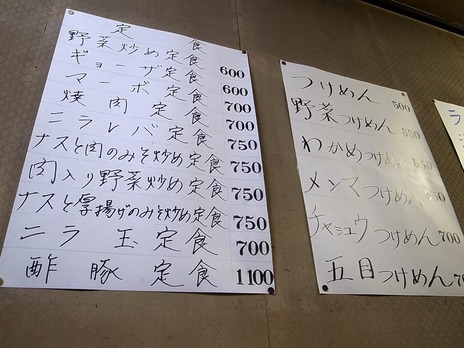 定食
野菜炒め定食 600
ギョーザ定食 600
マーボ定食 700
焼肉定食 700
ニラレバ定食 750
ナスと肉のみそ炒め定食 750
肉入り野菜炒め定食 750
ナスと厚揚げのみそ炒め定食 750
ニラ玉定食 700
酢豚定食 1100
つけめん 500
野菜つけめん 550
わかめつけめん
メンマつけめん
チャシュウつけめん 700
五目つけめん
ラ